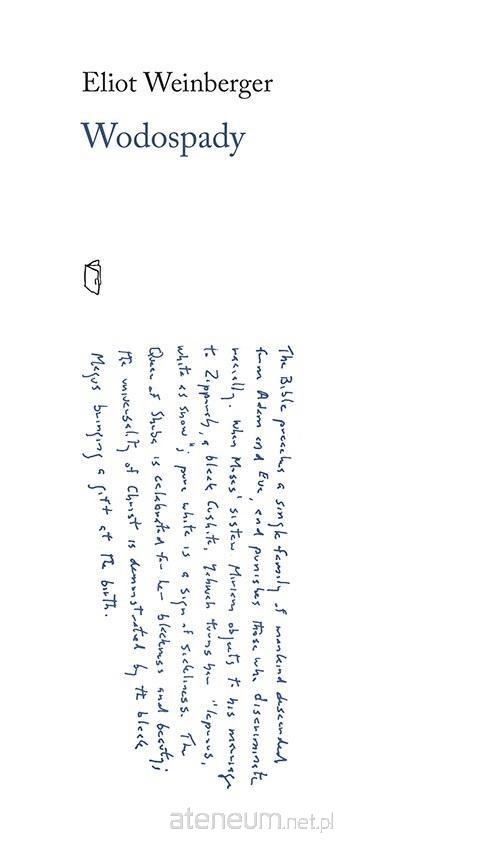 Eliot Weinberger
Wodospady
The Bible preaches a single family of mankind descended
from Adam and Eve, and punishes those who discriminate
racially. When Moses' sister Miriam objects to his marriage
to Zipporah, a black Cushite, Yahweh turns her "leprous,
white as snow"; pure white is a sign of sickliness. The
Queen of Sheba is celebrated for her blackness and beauty;
the universality of Christ is demonstrated by the black
Magus bringing a gift at the birth.
ateneum.net.pl